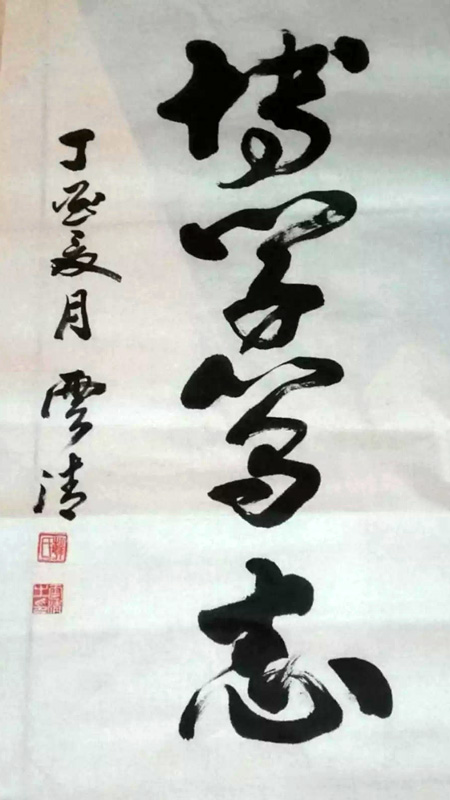 博学笃志
丁酉夏月 雲清